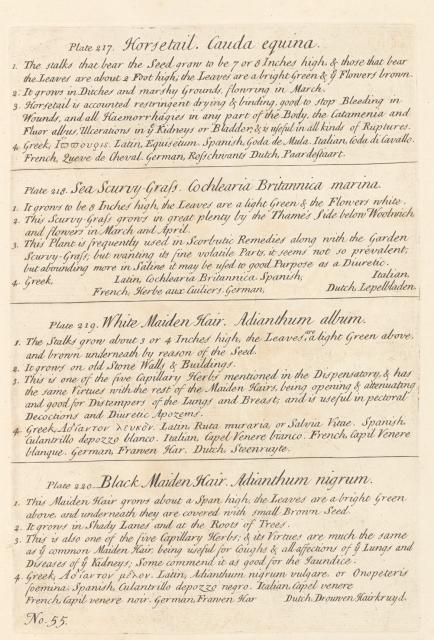 Plate 217. Horsetail. Cauda equina.
1. The stalks that bear the Seed grow to be 7 or 8 Inches high, & those that bear
the Leaves are about 2 Foot high; the Leaves are a bright Green & ẙ Flowers brown.
2. It grows in Ditches and marshy Grounds, flowring in March.
3. Horsetail is accounted restringent drying & binding, good to stop Bleeding in
Wounds, and all Haemorrhages in any part of the Body, the Catamenia and
Fluor albus, Ulcerations in ẙ Kidneys or Bladder, & is useful in all kinds of Ruptures.
4. Greek, Latin, Equisetum. Spanish, Goda de Mula. Italian, Coda di Cavallo.
French, Queve de Cheval. German, Rosschwants Dutch, Paardestaart.
Plate 218. Sea Scurvy Graſs. Cochlearia Britannica marina.
1. It grows to be 8 Inches high, the Leaves are a light Green & the Flowers white.
2. This Scurvy-Graſs grows in great plenty by the Thames Side below Woolwich
and flowers in March and April.
3. This Plant is frequently used in Scorbutic Remedies along with the Garden
Scurvy-Graſs; but wanting its fine volatile Parts, it seems not so prevalent;
but abounding more in Saline it may be uſed to good Purpose as a Diuretic.
4. Greek, Latin, Cochlearia Britannica. Spanish, Italian,
French, Herbe aux Cuiliers. German, Dutch, Lepelbladen.
Plate 219. White Maiden Hair. Adianthum album.
1. The Stalks grow about 3 or 4 Inches high, the Leaves are a light Green above,
and brown underneath by reason of the Seed.
2. It grows on old Stone Walls & Buildings.
3. This is one of the five Capillary Herbs mentioned in the Dispensatory, & has
the same Virtues with the rest of the Maiden Hairs, being opening & attenuating
and good for Distempers of the Lungs and Breast; and is useful in pectoral
Decoctions and Diuretic Apozems.
4. Greek, Αδίαντον λευκόν. Latin, Ruta muraria, or Salvia Vitae. Spanish,
Culantrillo depozzo blanco. Italian, Capel Venere bianco. French, Capil Venere
blanque. German, Frawen Har. Dutch, Steenruyte.
Plate 220. Black Maiden Hair. Adianthum nigrum.
1. This Maiden Hair grows about a Span high, the Leaves are a bright Green
above, and underneath they are covered with small Brown Seed.
2. It grows in Shady Lanes and at the Roots of Trees.
3. This is also one of the five Capillary Herbs; & its Virtues are much the same
as ẙ common Maiden Hair, being useful for Coughs & all affections of ẙ Lungs and
Diseases of ẙ Kidneys; Some commend it as good for the Jaundice.
4. Greek, Αδίαντον μέλαν. Latin, Adianthum nigrum vulgare, or Onopeteris
foemina. Spanish, Culantrillo depozzo negro. Italian, Capel venere
French, Capil venere noir. German, Frawen Har Dutch, Vrouwen Hairkruyd.
No. 55.